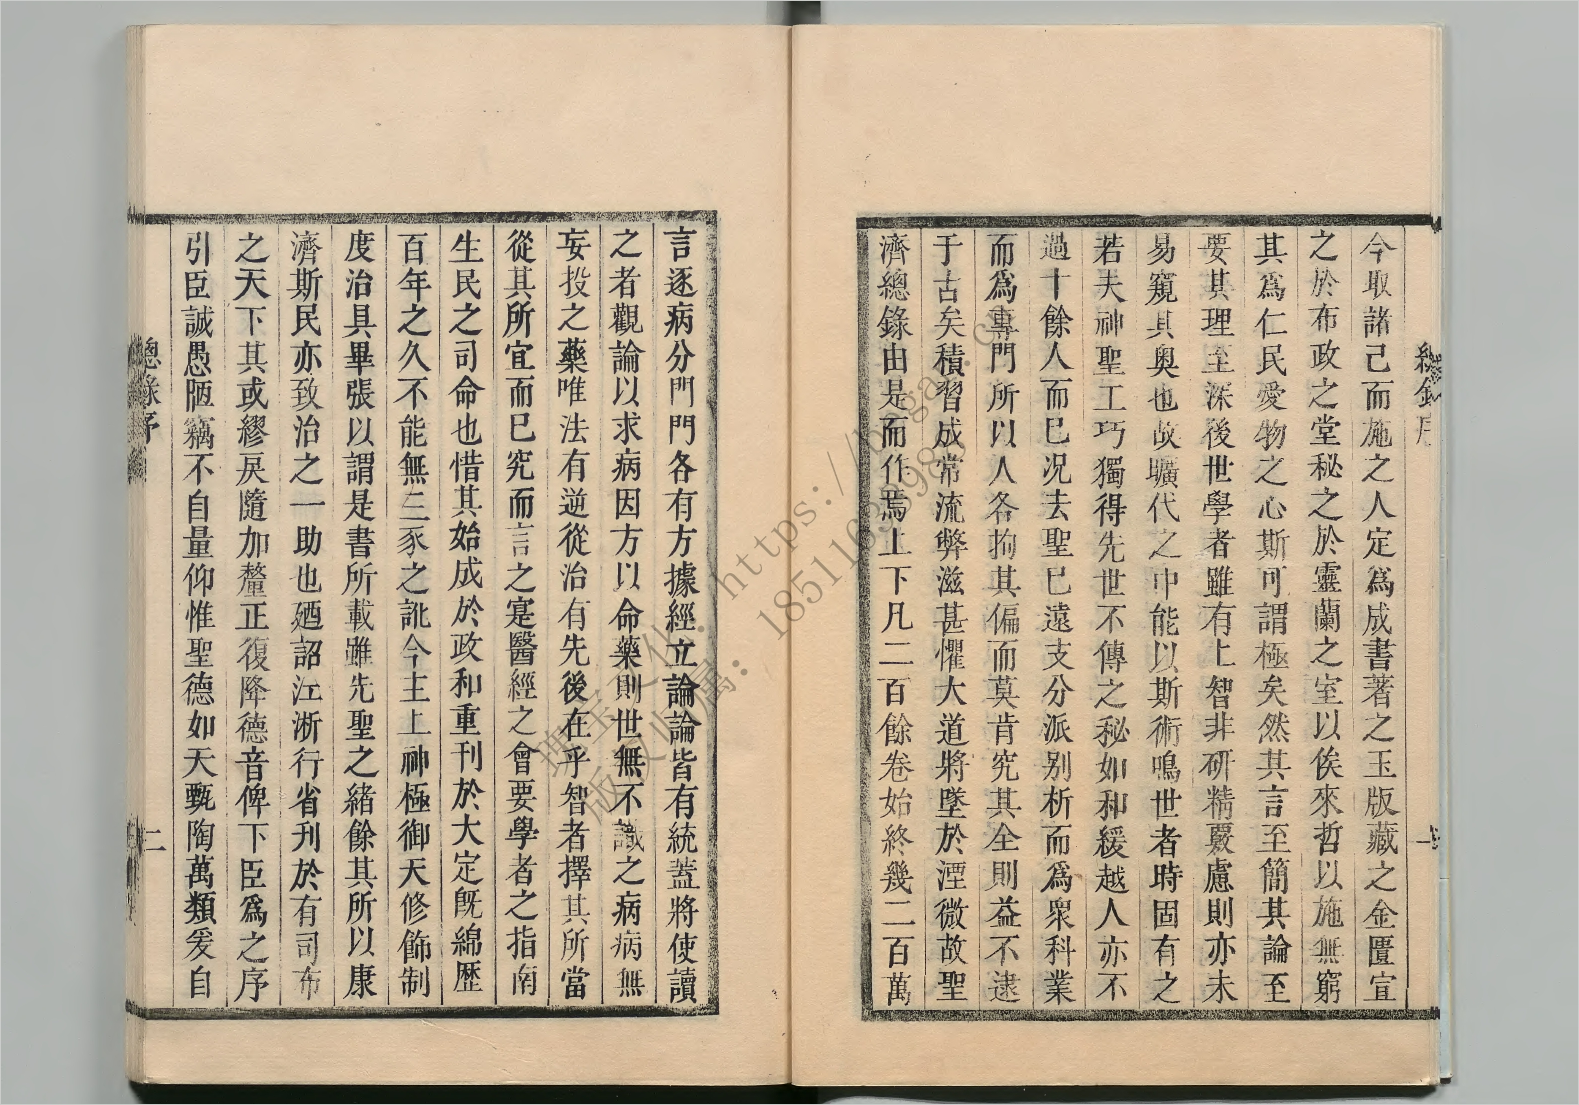 今取諸己而施之人定爲成書著之玉版藏之金匱宣
之於布政之堂秘之於靈蘭之室以俟來哲以施無窮
其爲仁民愛物之心斯可謂極矣然其言至簡其論至
要其理至深後世學者雖有上智非研精覈慮則亦未
易窺其奥也故曠代之中能以斯術鳴世者時固有之
若夫神聖工巧獨得先世不傳之秘如和緩越人亦不
過十餘人而巳况去聖巳遠支分派别析而爲衆科業
而爲專門所以人各拘其偏而莫肯究其全則益不逮
于古矣積習成常流弊滋甚懼大道將墜於湮微故聖
濟總錄由是而作焉上下凡二百餘卷始終幾二百萬
言逐病分門門各有方據經立論論皆有統蓋將使讀
之者觀論以求病因方以命藥則世無不識之病病無
妄投之藥唯法有逆從治有先後在乎智者擇其所當
從其所宜而巳究而言之寔醫經之會要學者之指南
生民之司命也惜其始成於政和重刊於大定旣綿歷
百年之久不能無三豕之訛今主上神極御天修飾制
度治具畢張以謂是書所載雖先聖之緒餘其所以康
濟斯民亦致治之一助也廼詔江浙行省刊於有司布
之天下其或繆戾隨加釐正復降德音俾下臣爲之序
引臣誠愚陋竊不自量仰惟聖德如天甄陶萬類爰自
總錄序
二
版权归属：18511639198
https://